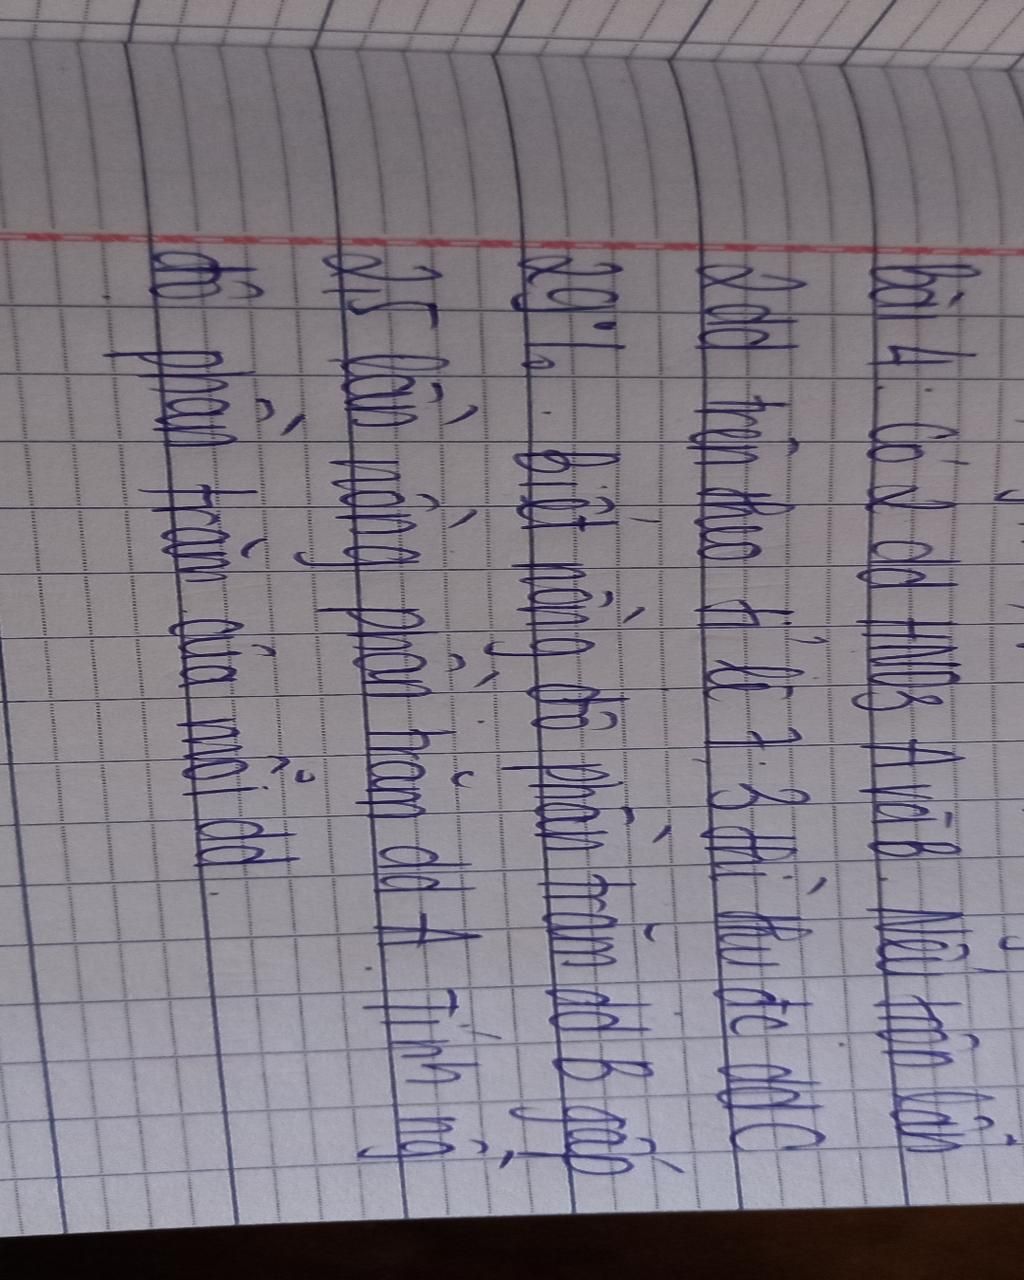 Bài 4: Có 2 dd HNO3 A và B. Nếu trộn lẫn
2 dd trên theo tỉ lệ 7:3 thì thu đc dd C
29%. Biết nồng độ phần trăm dd B gấp
2,5 lần nồng phần trăm dd A. Tính ng
độ phần trăm của mỗi dd.